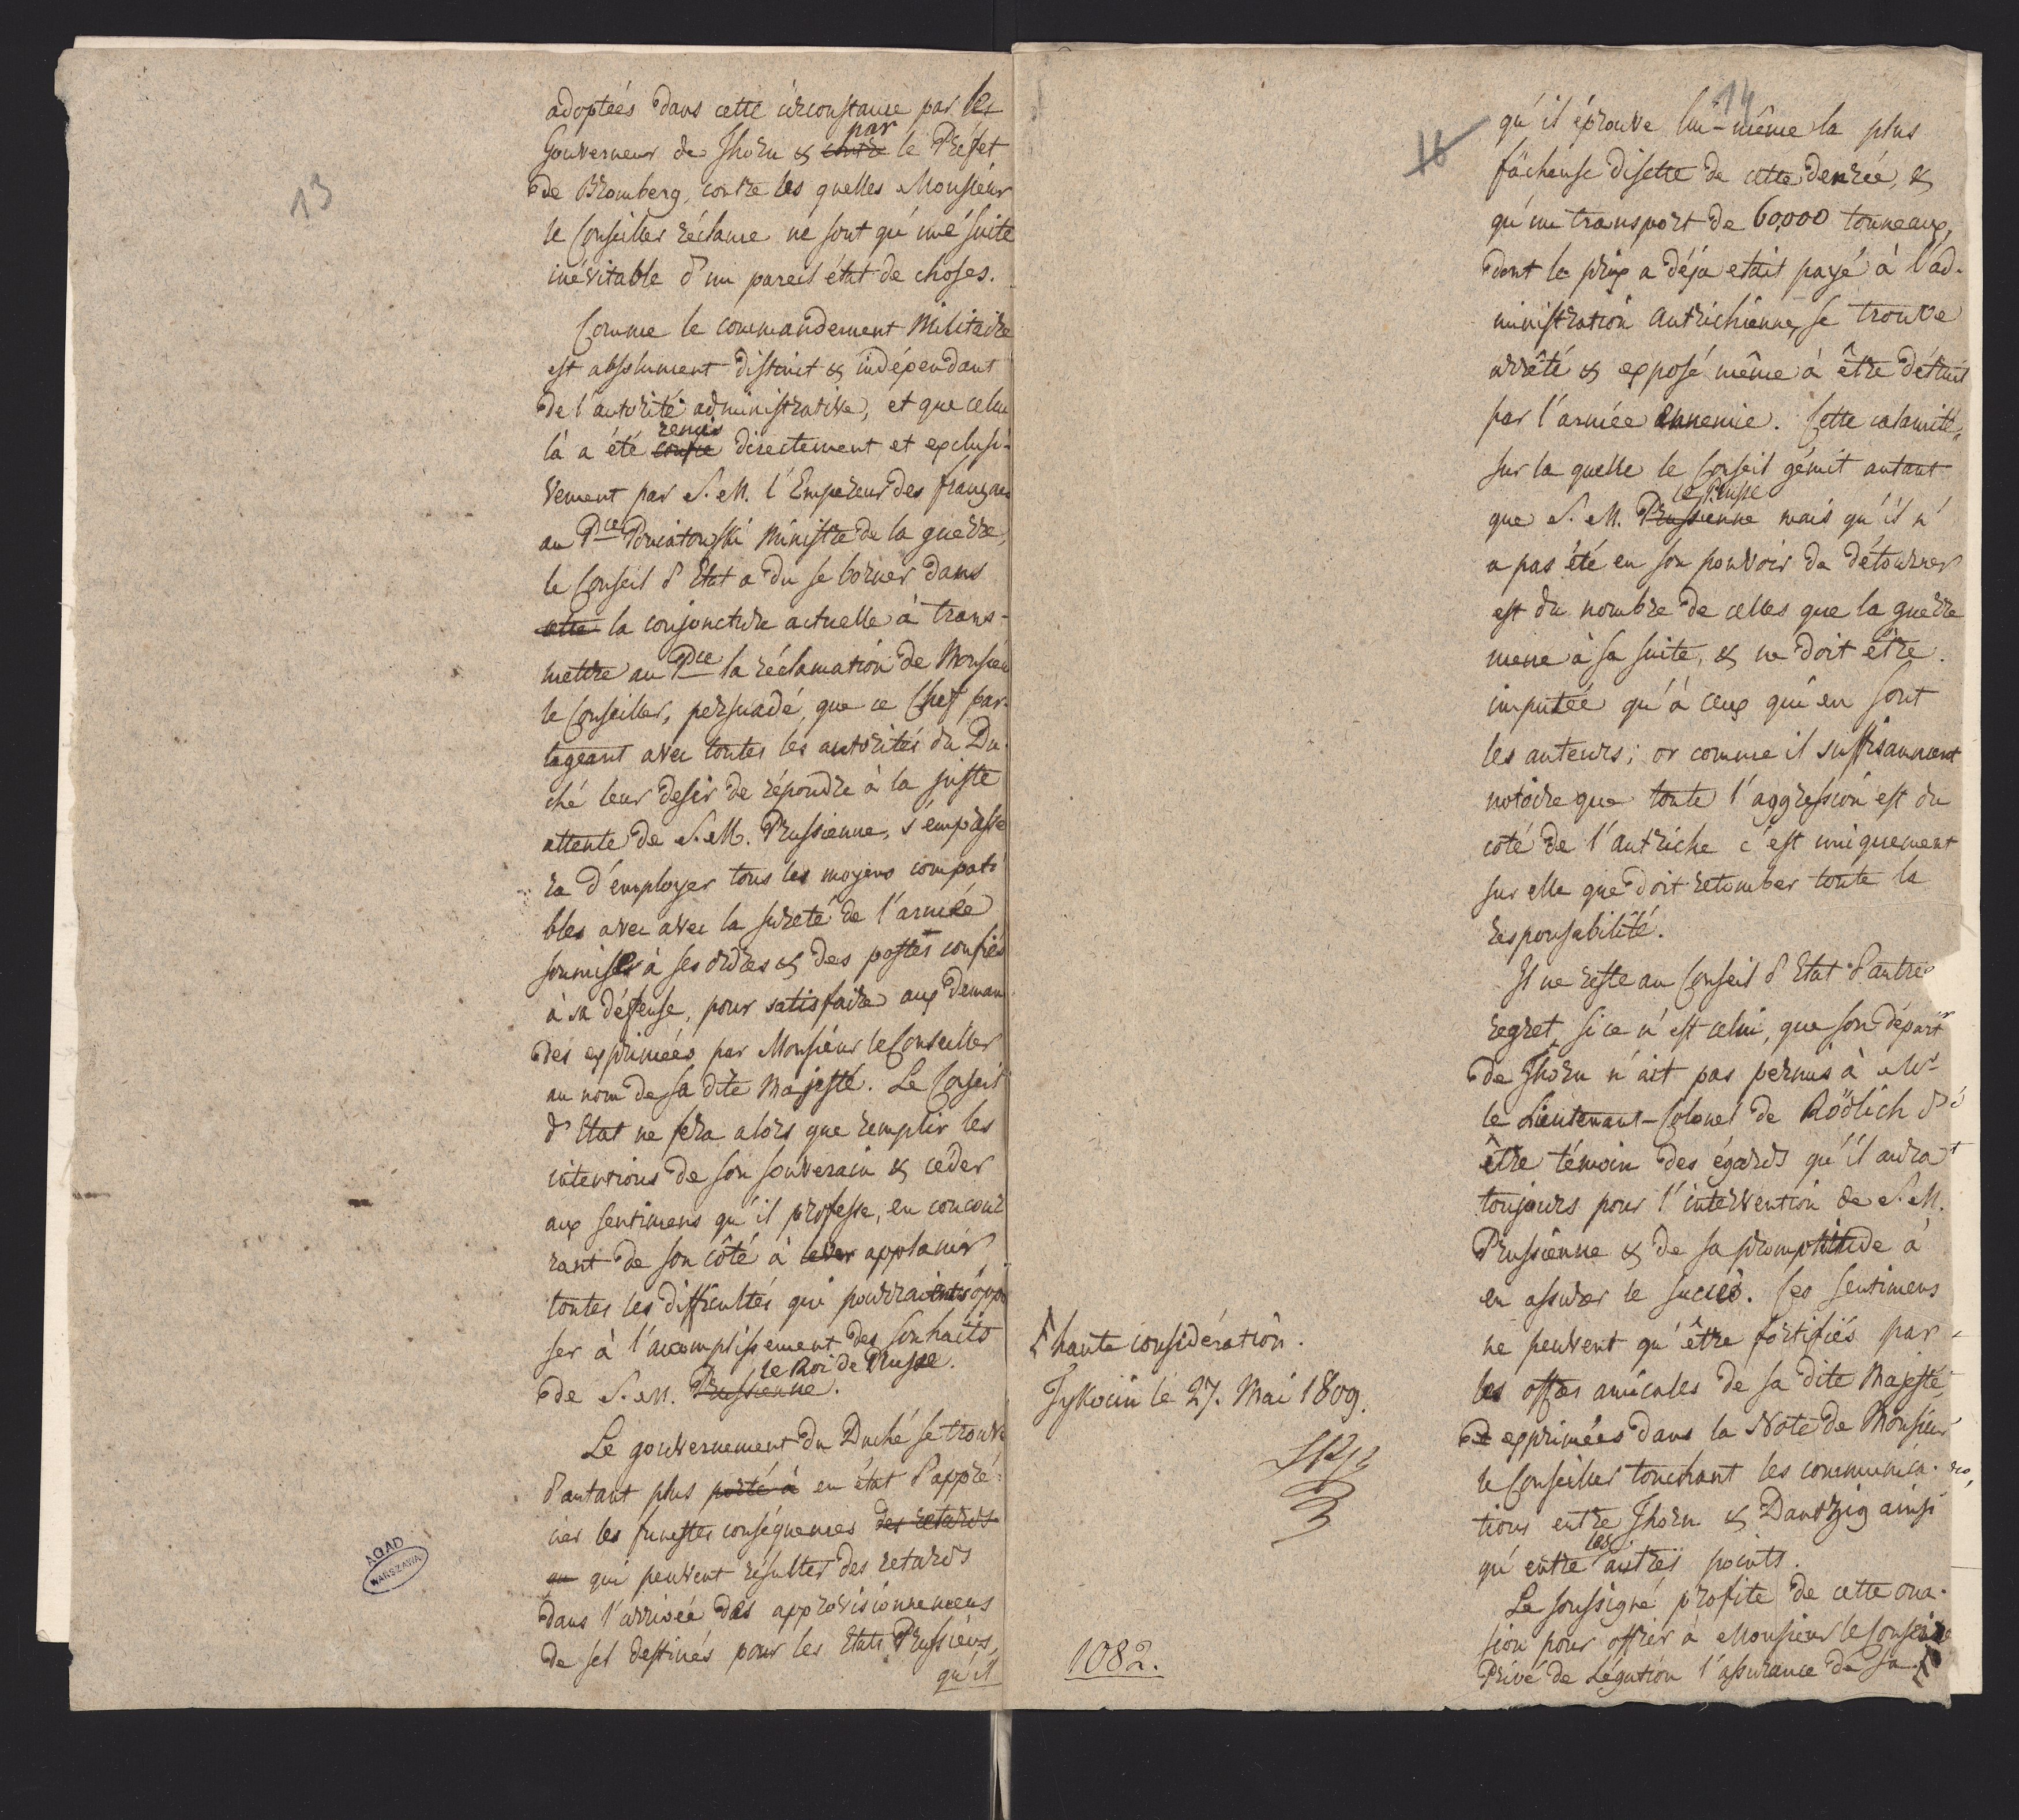 13
adoptées dans cette circonstance par le
Gouverneur de Thorn & contre par le Préfet
de Bromberg, contre les quelles Monsieur
le Conseiller réclame ne sont qu'une suite
inévitable d'un pareil état de choses.
Comme le commandement Militaire
est absolument distinct & indépendant
de l'autorité administrative, et que celui
là a été confié remis directement et exclusi-
vement par S. M. l'Empereur des français
au Pce Poniatowski Ministre de la guerre,
le Conseil d'Etat a du se borner dans
cette la conjoncture actuelle à trans-
mettre au Pce la réclamation de Monsieu
le Conseiller, persuadé, que ce Chef par-
tageant avec toutes les autorités du Du-
ché leur desir de répondre à la juste
attente de S. M. Prussienne, s'empresse
ra d'employer tous les moyens compati
bles avec avec la sureté de l'armée
soumise à ses ordres & des postes confiés
à sa défense, pour satisfaire aux deman
des exprimées par Monsieur le Conseiller
au nom de sa dite Majesté. Le Conseil
d'Etat ne fera alors que remplir les
intentions de son souverain & céder
aux sentimens qu'il professe, en concour
rant de son côté à lever applanir
toutes les difficultés qui pourraient s'oppo
ser à l'accomplissement des souhaits
de S. M. Prussienne le Roi de Prusse.
Le gouvernement du Duché se trouve
d'autant plus porté à en état d'appré-
cier les funestes conséquences des retards
qu qui peuvent résulter des retards
dans l'arrivée des approvisionnemens
de sel destinés pour les Etats Prussiens,
qu'il
AGAD
WARSZAWA
14
16
qu'il éprouve lui-même la plus
fâcheuse disette de cette denrée, &
qu'un transport de 60,000 tonneaux,
dont le prix a déja etait payé à l'ad-
ministration autrichienne, se trouve
arrêté & exposé même à être détruit
par l'armée ennemie. Cette calamité,
sur la quelle le Conseil gémit autant
que S. M. Prussienne le Prusse mais qu'il n'
a pas été en son pouvoir de détourner
est du nombre de celles que la guerre
mene à sa suite, & ne doit être
imputée qu'à ceux qui en sont
les auteurs; or comme il suffisamment
notoire que toute l'aggression est du
coté de l'autriche c'est uniquement
sur elle que doit retomber toute la
responsabilité.
Il ne reste au Conseil d'Etat d'autre
regret, si ce n'est celui, que son départ
de Thorn n'ait pas permis à Mr
le Lieutenant-Colonel de Röödlich d'
être témoin des égards qu'il aura
toujours pour l'intervention de S. M.
Prussienne & de sa promptitude à
en assurer le succès. Ces sentimens
ne peuvent qu'être fortifiés par
les offres amicales de sa dite Majesté
et exprimées dans la Note de Monsieur
le Conseiller touchant les communica-
tions entre Thorn & Dantzig ainsi
qu'entre les autres points.
Le soussigné profite de cette occa-
sion pour offrir à Monsieur le Conseiller
Privé de Légation l'assurance de sa
haute considération.
Tykocin le 27. Mai 1809.
1082.